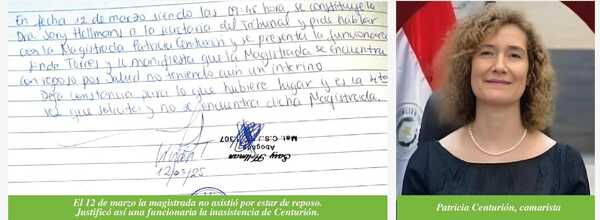 En fecha 12 de marzo siendo las 09:45 hora se constituye la
Dra. Sary Hellmann a la secretaria del Tribunal y pide hablar
con la Magistrada Patricia Centurion y se presenta la funcionaria
Torres y le manifiesta que la Magistrada se encuentra
con reposo por salud no teniendo aún un interino
Deja constancia para lo que hubiere lugar y es la 4ta
vez que solicita y no se encuentra dicha Magistrada.
Sary Hellman
Abogada
Mat. C.S.J. 307
12/03/25
El 12 de marzo la magistrada no asistió por estar de reposo.
Justificó así una funcionaria la inasistencia de Centurión.
Patricia Centurión, camarista